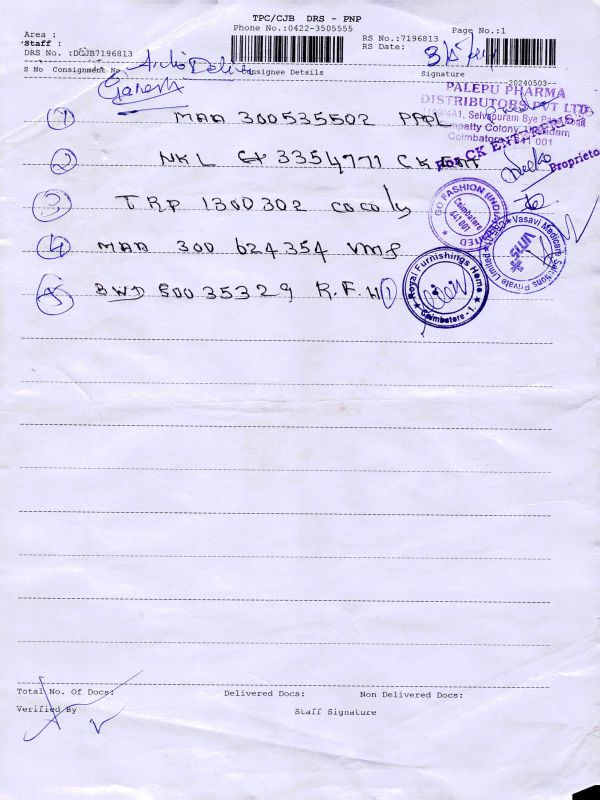 TPC/CJB DRS - PNP
Area :
Phone No.:0422-3505555
RS No.:7196813
Page No.:1
Staff :
RS Date:
3/5/24
DRS No. :DCJB7196813
S No Consignment No
Consignee Details
Signature
20240503
Ganesh
PALEPU PHARMA
DISTRIBUTORS PVT LTD
① MAA 300535502 PPPL
Selvapuram Bye Pass Road
Coimbatore 641 001
② NKL 3354771 CK ENT
For CK ENTERPRISES
Proprietor
③ TRP 1300302 cocoly
GO FASHION (INDIA) LIMITED
Coimbatore 641 001
④ MAA 300 624354 VMS
Vasavi Medicare Solutions Private Limited
VMS
⑤ BWD 80035329 R.F.H ①
Royal Furnishings Home
Coimbatore - 1.
Total No. Of Docs:
Delivered Docs:
Non Delivered Docs:
Verified By
Staff Signature